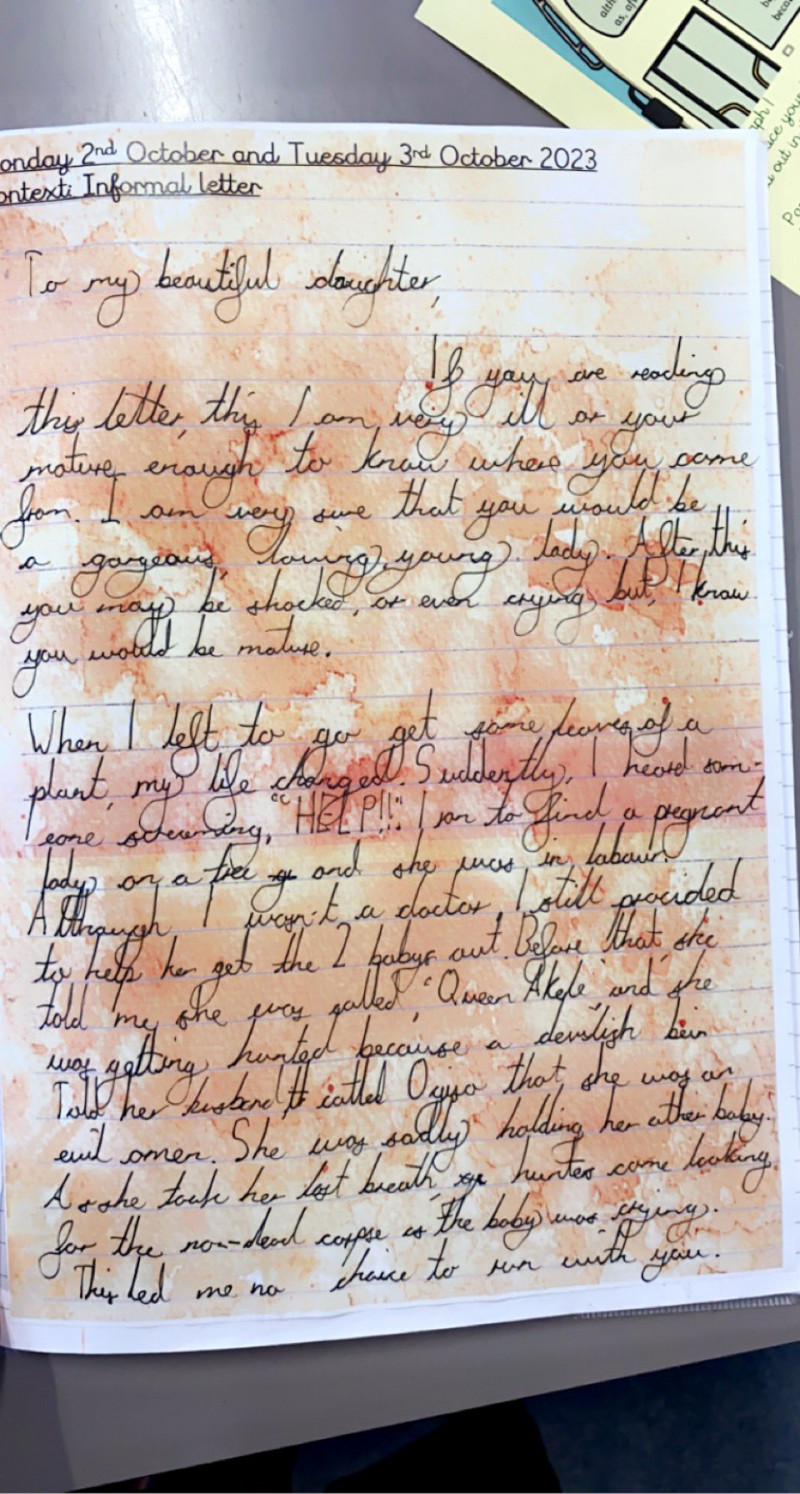 onday 2nd October and Tuesday 3rd October 2023
ontext: Informal letter
To my beautiful daughter,
If you are reading
this letter, this I am very ill or your
mature enough to know where you come
from. I am very sure that you would be
a gorgeous, loving, young lady. After this
you may be shocked, or even crying but, I know
you would be mature.
When I left to go get some leaves of a
plant, my life changed. Suddently, I heard som-
eone screaming, "HELP!!". I ran to find a pregnant
lady on a tree and she was in labour.
Although I wasn't a doctor, I still procided
to help her get the 2 babys out. Before that, she
told me she was called, "Queen Akele" and she
was getting hunted because a devslish bein
Told her husband called Ogiso that she was an
evil omen. She was sadly holding her other baby.
As she took her last breath, huntes come looking
for the non-dead corpse as the baby was crying.
This led me no choice to run with you.
alth
as, af
beca
ph)
ce your
out in
Pa